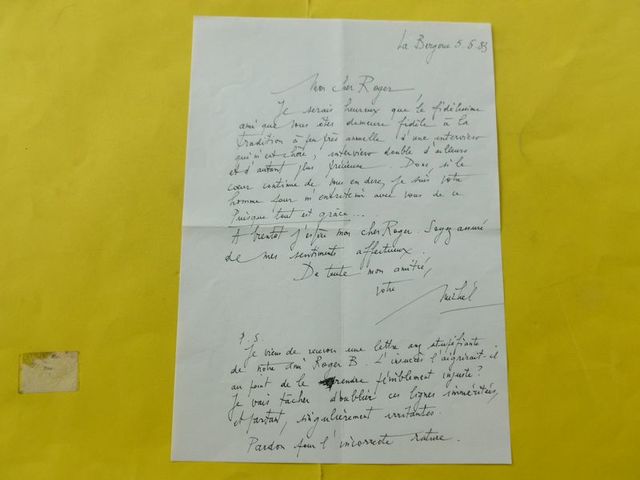 La Bergerie 5. 6. 83
Mon cher Roger,
Je serais heureux que le fidélissime
ami que vous êtes demeure fidèle à la
tradition à peu près annuelle d'une interview
qui m'est chère, interview double d'ailleurs
et d'autant plus précieuse. Donc si le
cœur continue de vous en dire, je suis votre
homme pour m'entretenir avec vous de ce
Puisque tout est grâce...
A bientôt j'espère mon cher Roger. Soyez assuré
de mes sentiments affectueux.
De toute mon amitié,
votre
Michel
P.S
Je viens de recevoir une lettre stupéfiante
de notre ami Roger B. L'insuccès l'aigrirait-il
au point de le rendre péniblement injuste?
Je vais tâcher d'oublier ces lignes imméritées,
et partant, singulièrement irritantes.
Pardon pour l'incorrecte rature.